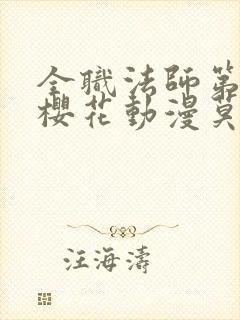 全職法師第
櫻花動漫莫
汪海濤